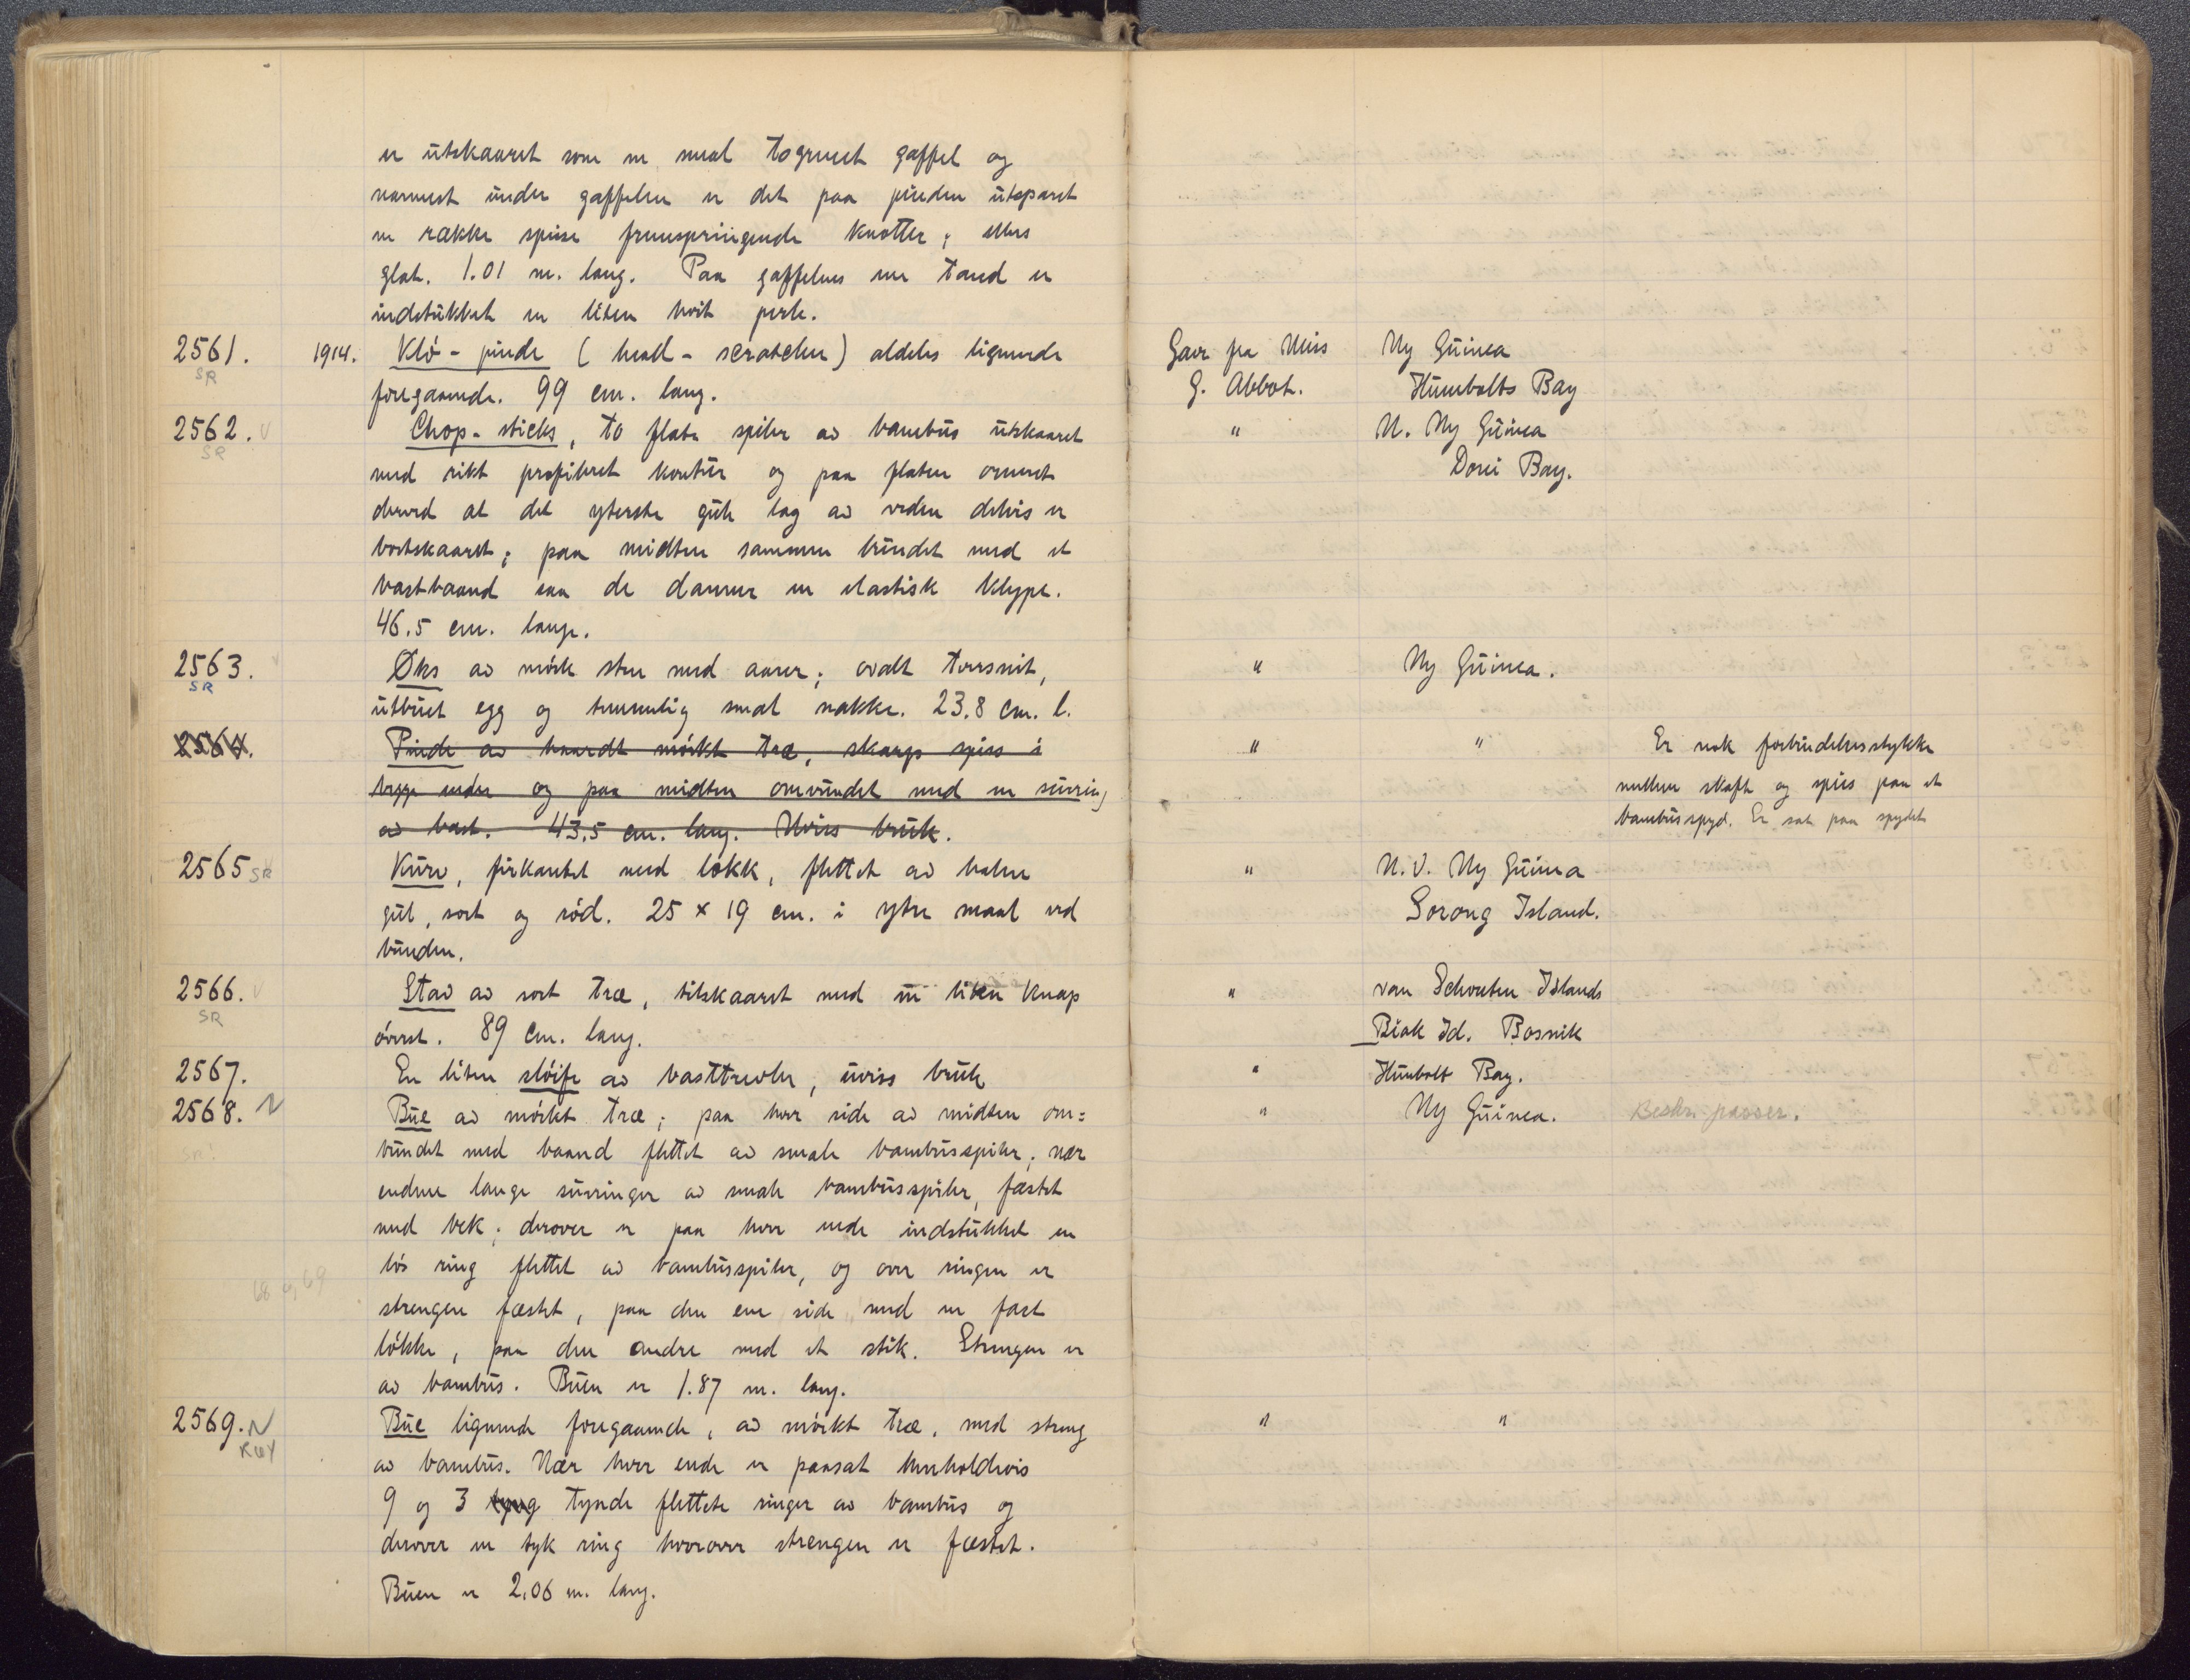 er utskaaret som en smal togrenet gaffel og
nærmest under gaffelen er det paa pinden utsparet
en række spisse fremspringende knotter; ellers
glat. 1.01 m. lang. Paa gaffelens ene tand er
indstukket en liten hvit perle.
2561. SR 1914. Klö-pinde (head-scratcher) aldeles lignende Gave fra Miss Ny Guinea
foregaaende. 99 cm. lang. G. Abbot. Humbolts Bay
2562. V SR Chop-sticks, to flate spiler av bambus utskaaret " N. Ny Guinea
med rikt profileret kontur og paa flaten ornert Dorei Bay.
derved at det yterste gule lag av veden delvis er
bortskaaret; paa midten sammen bundet med et
bastbaand saa de danner en elastisk klype.
46.5 cm. lange.
2563. V SR Øks av mörk sten med aarer; ovalt tversnit, " Ny Guinea.
utbuet egg og temmelig smal nakke. 23.8 cm. l.
2564. Pinde av haardt mörkt træ, skarp spiss i " " Er nok forbindelsesstykke
begge ender og paa midten omvundet med en surring mellem skaft og spiss paa et
av bast. 43.5 cm. lang. Uviss bruk. bambusspyd. Er sat paa spydet
2565 SR V Kurv, firkantet med lokk, flettet av halm " N.V. Ny Guinea
gul, sort og röd. 25 x 19 cm. i ytre maal ved Sorong Island.
bunden.
2566. V SR Stav av sort træ, tilskaaret med en liten knap " van Schouten Islands
överst. 89 cm. lang. Biak Id. Bosnik
2567. En liten slöife av basttrevler, uviss bruk " Humbolt Bay.
2568. N Bue av mörkt træ; paa hver side av midten om= " Ny Guinea. Beskr. passer.
SR bundet med baand flettet av smale bambusspiler; nær
endene lange surringer av smale bambusspiler, fæstet
med bek; derover er paa hver ende indstukket en
lös ring flettet av bambusspiler, og over ringen er
68 69 strengen fæstet, paa den ene side med en fast
lökke, paa den andre med et stik. Strengen er
av bambus. Buen er 1.87 m. lang.
2569. N Bue lignende foregaaende, av mörkt træ, med streng " "
av bambus. Nær hver ende er paasat henholdsvis
9 og 3 tynde flettede ringer av bambus og
derover en tyk ring hvorover strengen er fæstet.
Buen er 2.06 m. lang.